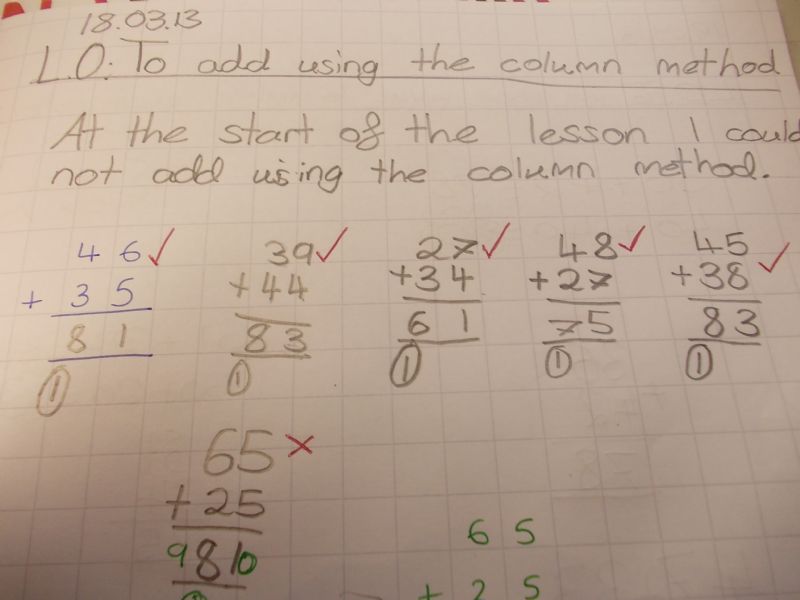 18.03.13
L.O: To add using the column method
At the start of the lesson I could
not add using the column method.
46 39 27 48 45
+ 35 +44 +34 +27 +38
81 83 61 75 83
1 1 1 1 1
65
+25
9 8 10
65
+ 25